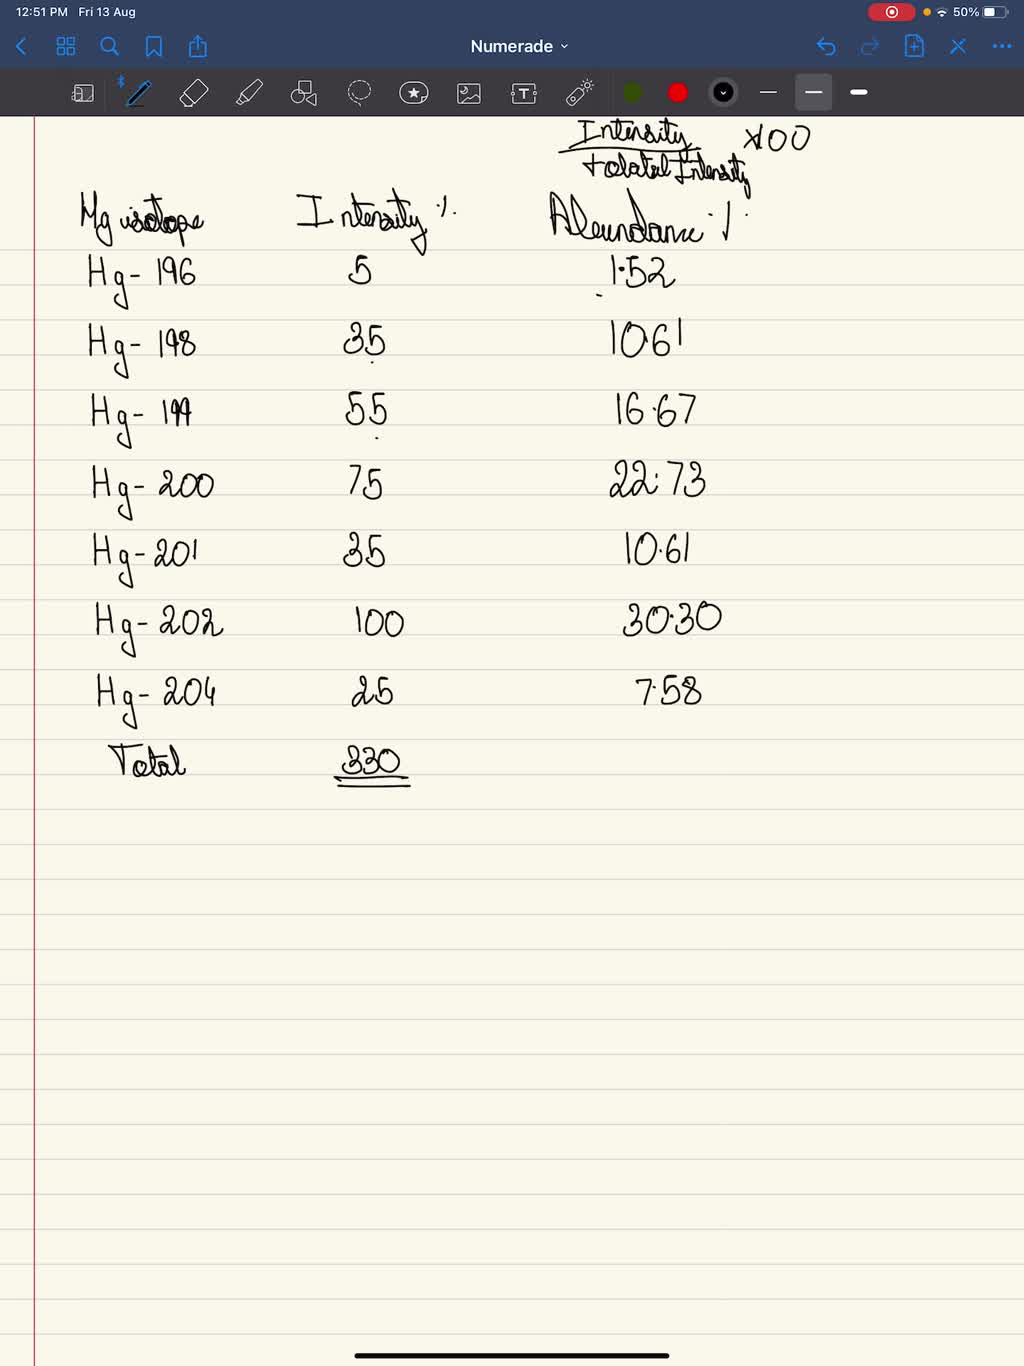 12:51 PM Fri 13 Aug 50%
Numerade
T
Intensity ×100
totatal Intensity
Hg isotope Intensity % Abundance %
Hg- 196 5 1.52
Hg- 198 35 10.61
Hg- 199 55 16.67
Hg- 200 75 22.73
Hg- 201 35 10.61
Hg- 202 100 30.30
Hg- 204 25 7.58
Total 330